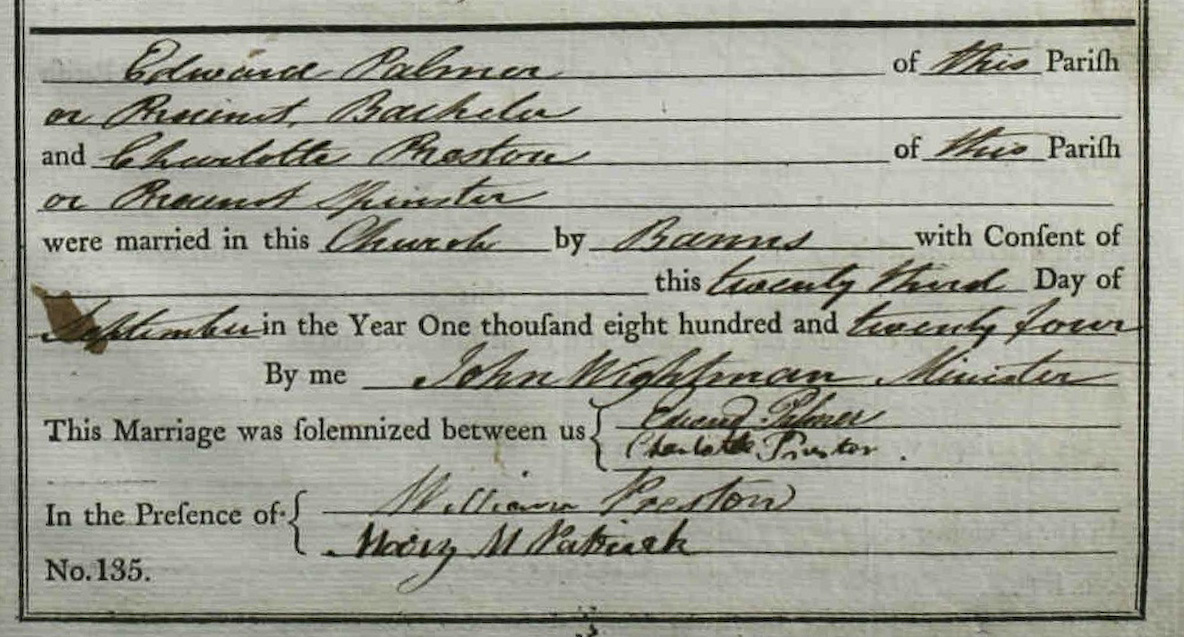 Edward Palmer of this Pariſh
or Precinct, Bachelor
and Charlotte Preston of this Pariſh
or Precinct Spinster
were married in this Church by Banns with Conſent of
this twenty third Day of
September in the Year One thouſand eight hundred and twenty four
By me John Wightman Minister
This Marriage was ſolemnized between us { Edward Palmer
Charlotte Preston.
In the Preſence of { William Preston
Mary M Patrick
No. 135.